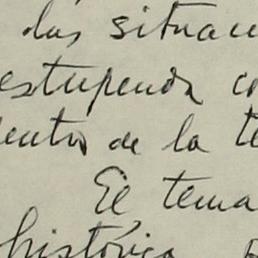 las situac
estupenda co
dentro de la te
El tema
histórica